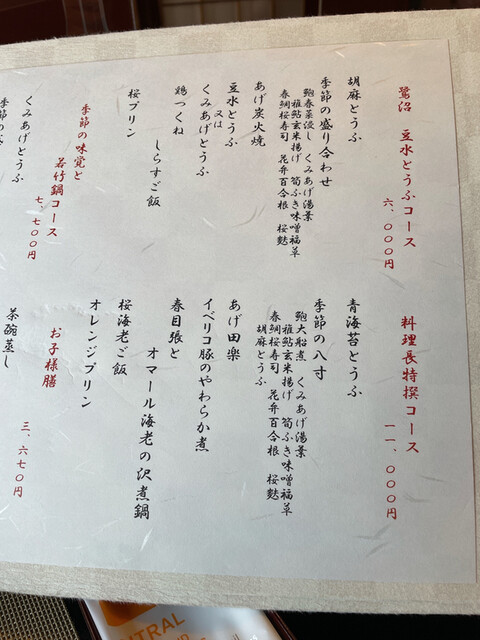 鷺沼 豆水とうふコース
六、〇〇〇円
胡麻とうふ
季節の盛り合わせ
鮑春蒸浸し くみあげ湯葉
稚鮎玄米揚げ 筍ふき味噌福草
春鯛桜寿司 花弁百合根 桜麩
あげ炭火焼
豆水とうふ
又は
くみあげとうふ
鶏つくね
しらすご飯
桜プリン
季節の味覚と
若竹鍋コース
七、七〇〇円
くみあげとうふ
料理長特撰コース
一一、〇〇〇円
青海苔とうふ
季節の八寸
鮑大船煮 くみあげ湯葉
稚鮎玄米揚げ 筍ふき味噌福草
春鯛桜寿司 花弁百合根 桜麩
胡麻とうふ
あげ田楽
イベリコ豚のやわらか煮
春目張と
オマール海老の沢煮鍋
桜海老ご飯
オレンジプリン
お子様膳
三、六七〇円
茶碗蒸し
NTRAL